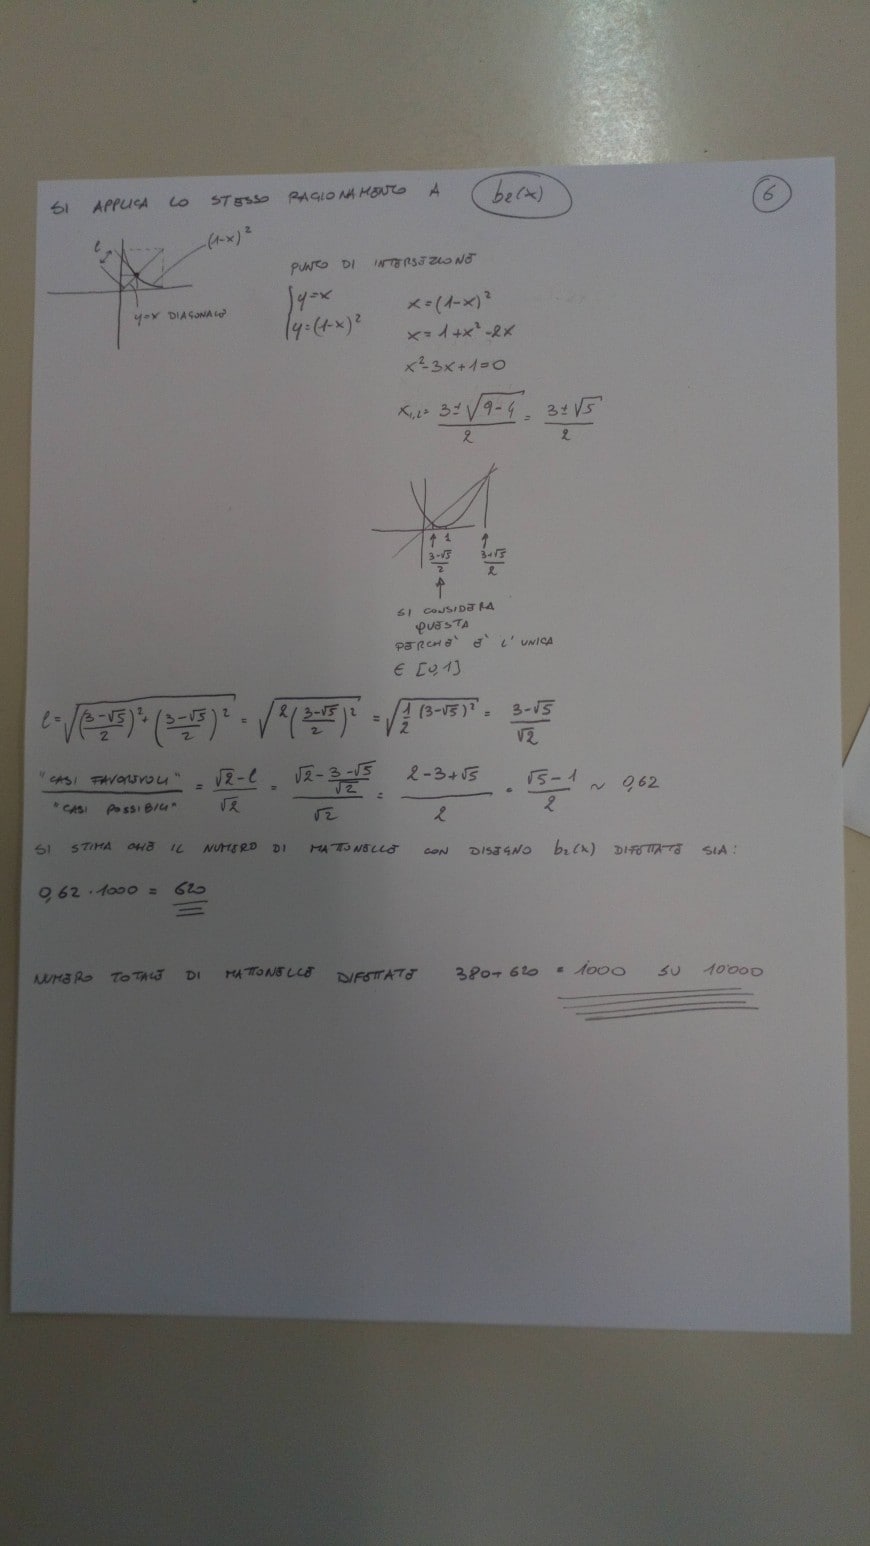 SI APPLICA LO STESSO RAGIONAMENTO A b₂(x) 6
l (1-x)²
y=x DIAGONALE
PUNTO DI INTERSEZIONE
{ y=x
y=(1-x)²
x=(1-x)²
x=1+x²-2x
x²-3x+1=0
x₁,₂= (3±√(9-4))/2 = (3±√5)/2
1
(3-√5)/2 (3+√5)/2
SI CONSIDERA
QUESTA
PERCHÈ È L'UNICA
∈ [0,1]
l = √(((3-√5)/2)² + ((3-√5)/2)²) = √(2((3-√5)/2)²) = √(1/2 (3-√5)²) = (3-√5)/√2
"CASI FAVOREVOLI"/"CASI POSSIBILI" = (√2-l)/√2 = (√2 - (3-√5)/√2)/√2 = (2-3+√5)/2 = (√5-1)/2 ~ 0,62
SI STIMA CHE IL NUMERO DI MATTONELLE CON DISEGNO b₂(x) DIFETTATE SIA:
0,62 · 1000 = 620
NUMERO TOTALE DI MATTONELLE DIFETTATE 380+620 = 1000 SU 10'000